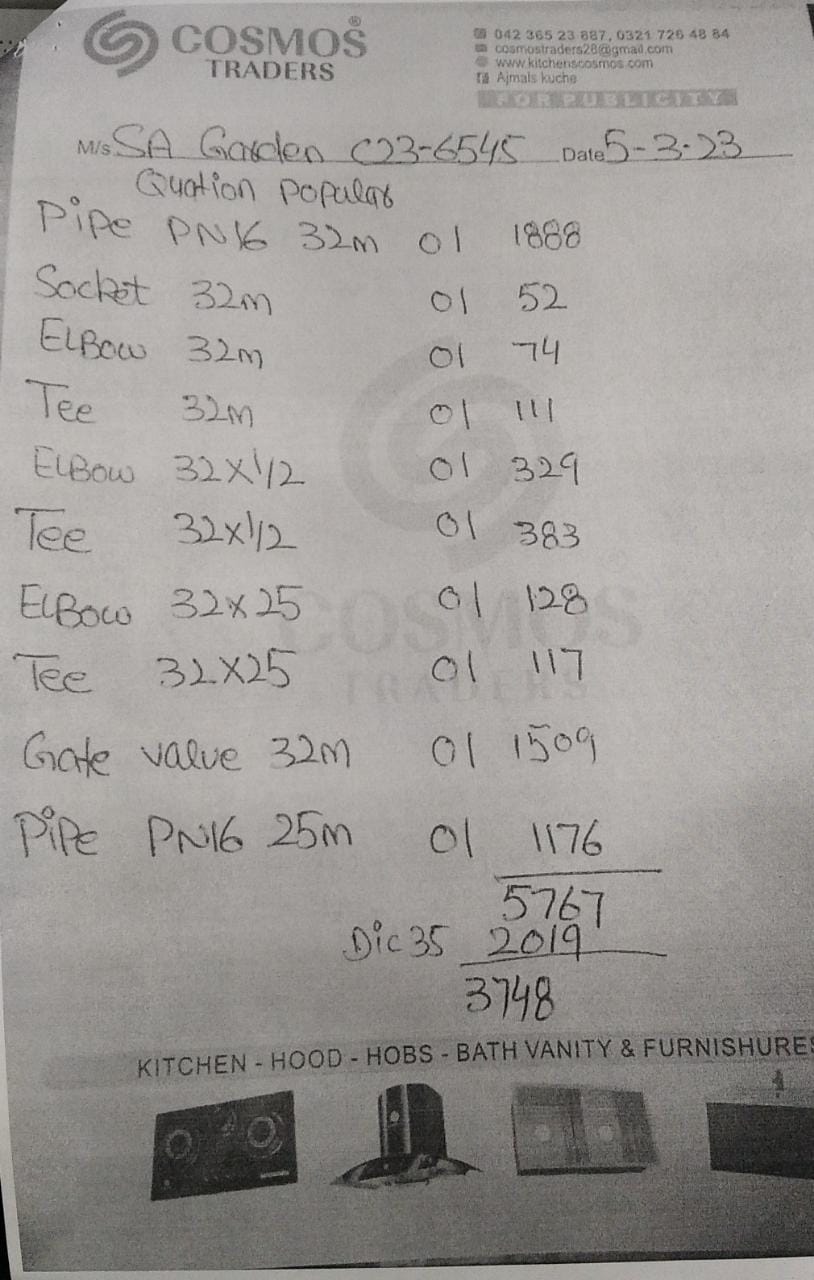 COSMOS®
TRADERS
042 365 23 887, 0321 726 48 84
cosmostraders28@gmail.com
www.kitchenscosmos.com
Ajmals kuche
FOR PUBLICITY
M/s SA Garden C23-6545 Date 5-3-23
Quation Popular
Pipe PN16 32m 01 1888
Socket 32m 01 52
ELBow 32m 01 74
Tee 32m 01 111
ELBow 32x1/2 01 329
Tee 32x1/2 01 383
ELBow 32x25 01 128
Tee 32x25 01 117
Gate value 32m 01 1509
PiPe PN16 25m 01 1176
5767
Dic 35 2019
3748
COSMOS
TRADERS
KITCHEN - HOOD - HOBS - BATH VANITY & FURNISHURES